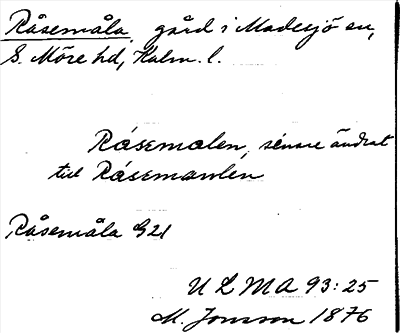 Råsemåla, gård i Madesjö sn,
S. Möre hd, Kalm. l.
Råsemalen, senare ändrat
till Råsemawlen
Råsemåla G21
ULMA 93:25
M. Jonsson 1876